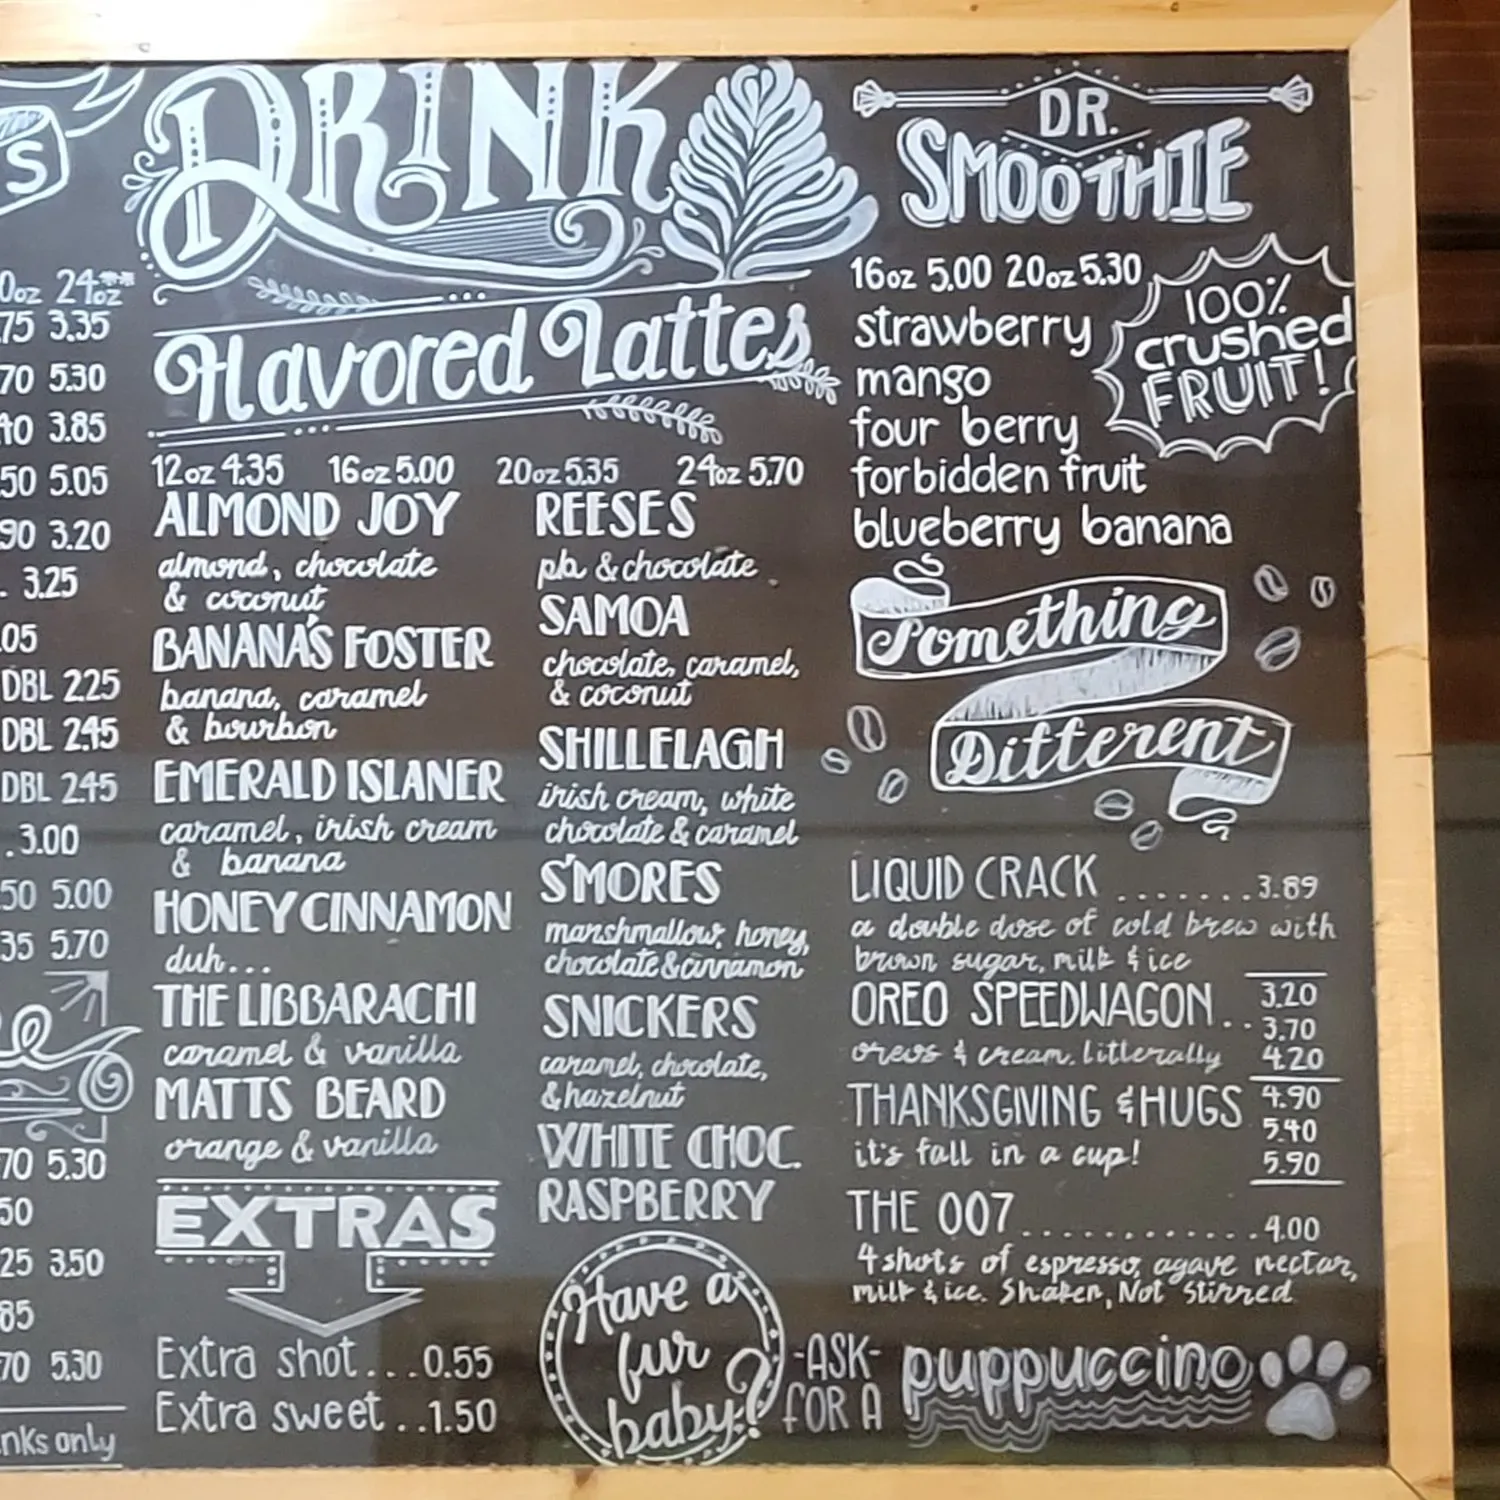 S
DRINK
0oz 24oz**
75 3.35
70 5.30
40 3.85
50 5.05
90 3.20
. 3.25
.05
DBL 2.25
DBL 2.45
DBL 2.45
. 3.00
50 5.00
35 5.70
70 5.30
50
25 3.50
85
70 5.30
nks only
Flavored Lattes
12oz 4.35 16oz 5.00 20oz 5.35 24oz 5.70
ALMOND JOY
almond, chocolate
& coconut
BANANA'S FOSTER
banana, caramel
& bourbon
EMERALD ISLANER
caramel, irish cream
& banana
HONEY CINNAMON
duh...
THE LIBBARACHI
caramel & vanilla
MATTS BEARD
orange & vanilla
EXTRAS
Extra shot...0.55
Extra sweet..1.50
REESES
pb & chocolate
SAMOA
chocolate, caramel,
& coconut
SHILLELAGH
irish cream, white
chocolate & caramel
S'MORES
marshmallow, honey,
chocolate & cinnamon
SNICKERS
caramel, chocolate,
& hazelnut
WHITE CHOC.
RASPBERRY
Have a
fur
baby?
-ASK-
FOR A
puppuccino
DR.
SMOOTHIE
16oz 5.00 20oz 5.30
strawberry
mango
four berry
forbidden fruit
blueberry banana
100%
crushed
FRUIT!
Something
Different
LIQUID CRACK .......3.89
a double dose of cold brew with
brown sugar, milk & ice
OREO SPEEDWAGON..
3.20
3.70
4.20
oreos & cream. litterally
THANKSGIVING & HUGS
4.90
5.40
5.90
it's fall in a cup!
THE 007............4.00
4 shots of espresso, agave nectar,
milk & ice. Shaken, Not Stirred